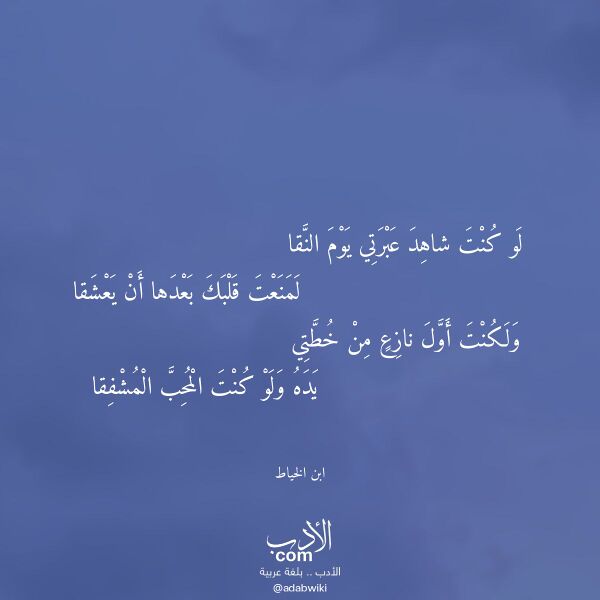 لَو كُنْتَ شاهِدَ عَبْرَتِي يَوْمَ النَّقا
لَمَنَعْتَ قَلْبَكَ بَعْدَها أَنْ يَعْشَقا
وَلَكُنْتَ أَوَّلَ نازِعٍ مِنْ خُطَّتِي
يَدَهُ وَلَوْ كُنْتَ الْمُحِبَّ الْمُشْفِقا
ابن الخياط
الأدب
com
الأدب .. بلغة عربية
@adabwiki